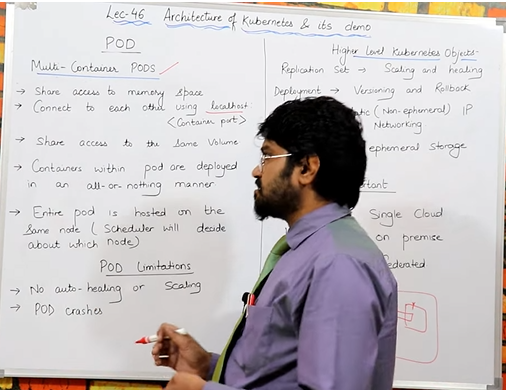 Lec-46 Architecture of Kubernetes & its demo
POD
Multi-Container PODS
→ Share access to memory space
→ Connect to each other using localhost
<Container port>
→ Share access to the same Volume
→ Containers within pod are deployed
in an all-or-nothing manner
→ Entire pod is hosted on the
same node (Scheduler will decide
about which node)
POD Limitations
→ No auto-healing or Scaling
→ POD crashes
Higher Level Kubernetes Objects-
Replication Set → Scaling and healing
Deployment → Versioning and Rollback
(Non-ephemeral) IP
Networking
ephemeral storage
Single Cloud
on premise